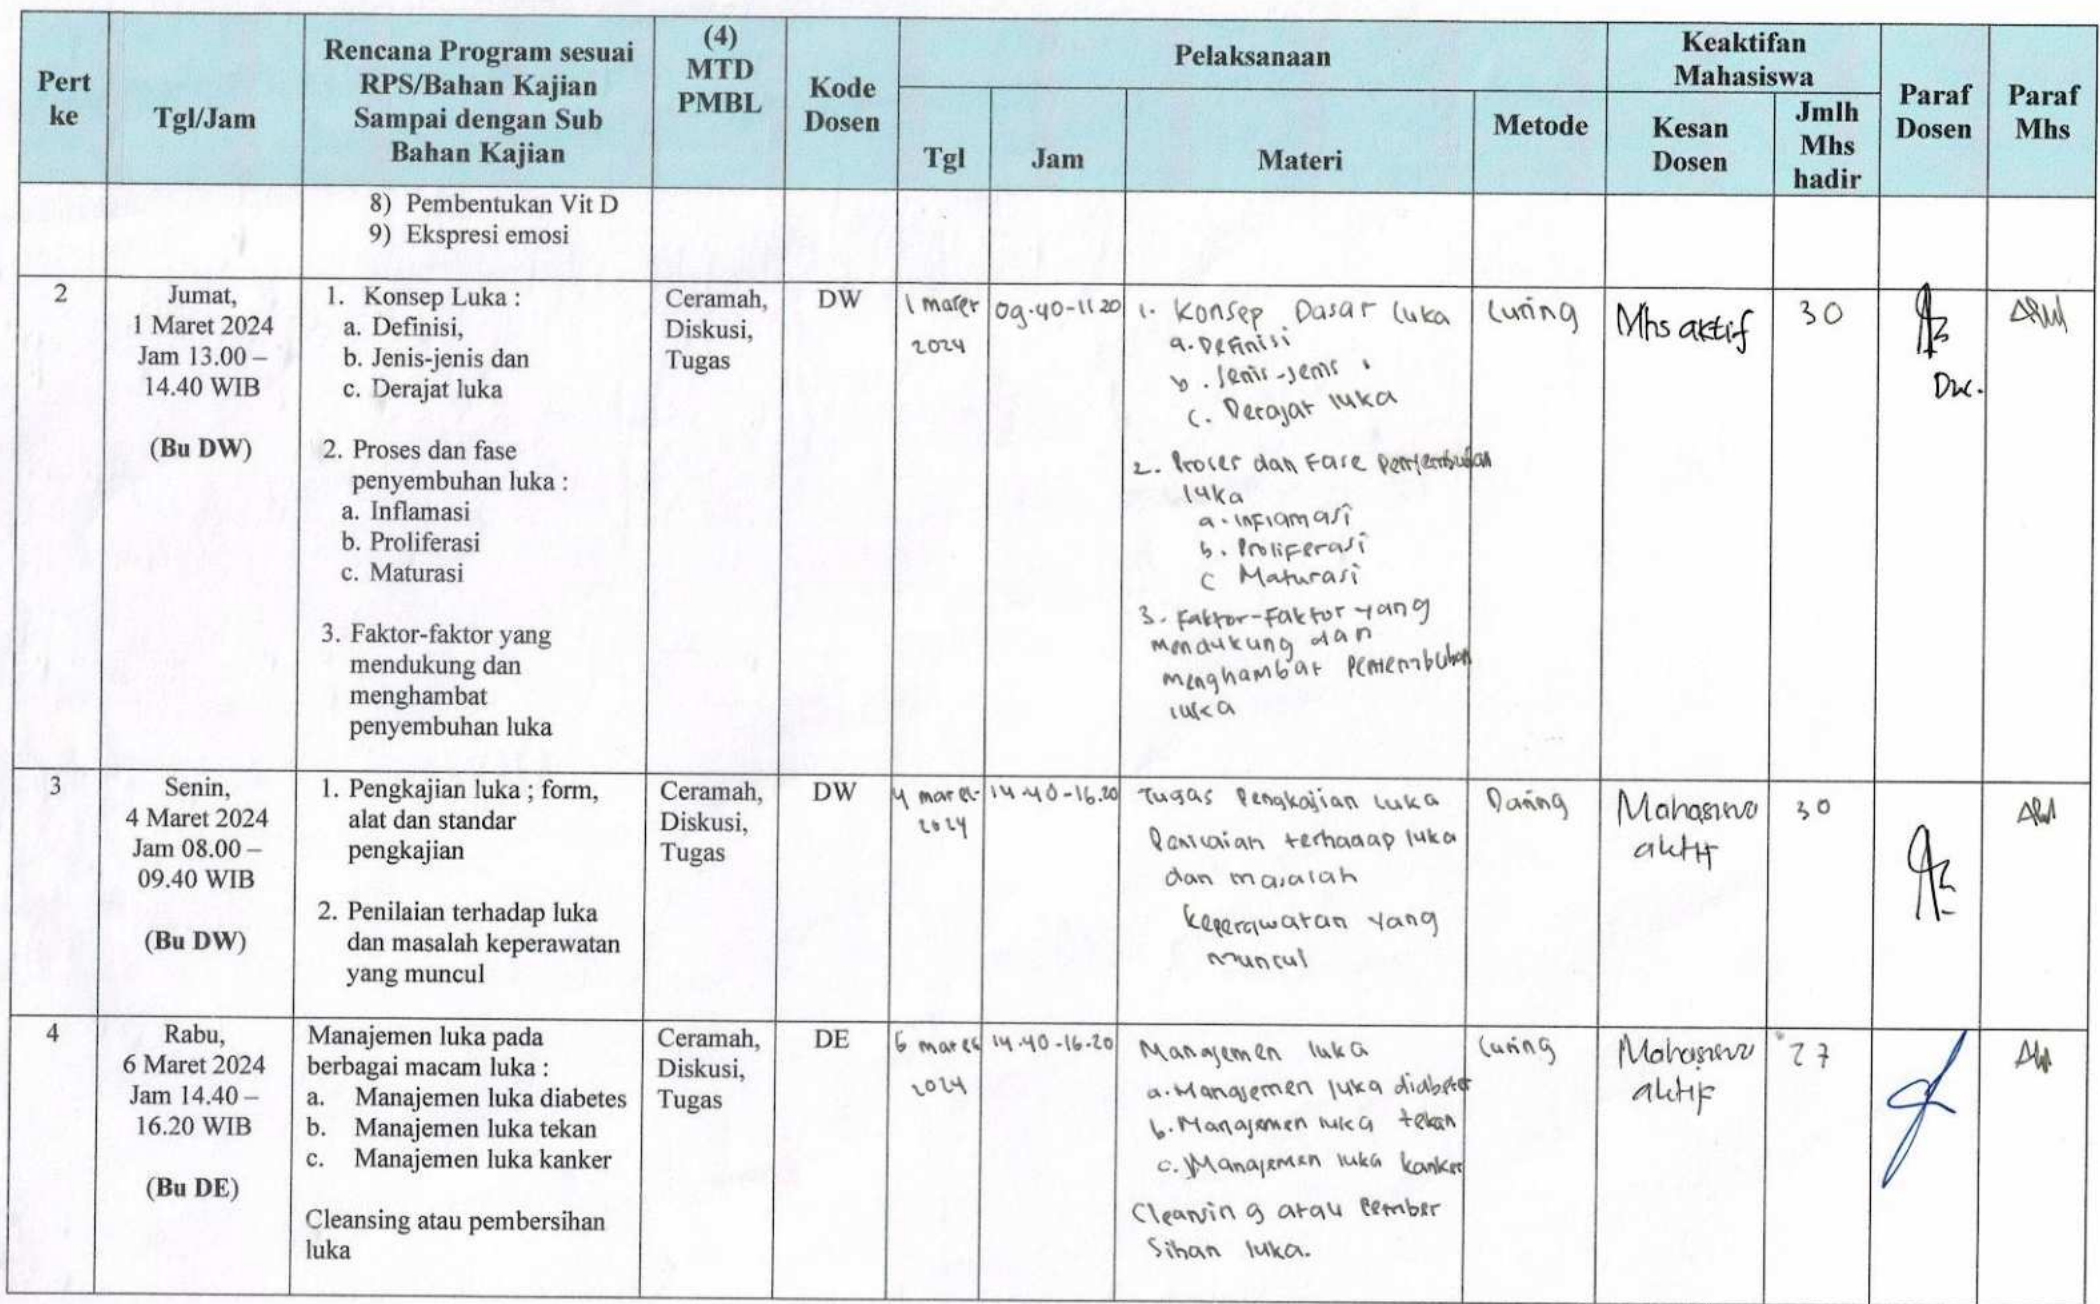 Pert ke
Tgl/Jam
Rencana Program sesuai
RPS/Bahan Kajian
Sampai dengan Sub
Bahan Kajian
(4)
MTD
PMBL
Kode
Dosen
Pelaksanaan
Tgl
Jam
Materi
Metode
Keaktifan
Mahasiswa
Kesan
Dosen
Jmlh
Mhs
hadir
Paraf
Dosen
Paraf
Mhs
8) Pembentukan Vit D
9) Ekspresi emosi
2
Jumat,
1 Maret 2024
Jam 13.00 –
14.40 WIB
(Bu DW)
1. Konsep Luka :
a. Definisi,
b. Jenis-jenis dan
c. Derajat luka
2. Proses dan fase
penyembuhan luka :
a. Inflamasi
b. Proliferasi
c. Maturasi
3. Faktor-faktor yang
mendukung dan
menghambat
penyembuhan luka
Ceramah,
Diskusi,
Tugas
DW
1 maret
2024
09.40-11.20
1. Konsep Dasar luka
a. Definisi
b. Jenis-jenis
c. Derajat luka
2. Proses dan Fase
luka
a. Inflamasi
b. Proliferasi
c Maturasi
3. Faktor-Faktor yang
mendukung dan
menghambat
luka
Luring
Mhs aktif
30
Dw.
3
Senin,
4 Maret 2024
Jam 08.00 –
09.40 WIB
(Bu DW)
1. Pengkajian luka ; form,
alat dan standar
pengkajian
2. Penilaian terhadap luka
dan masalah keperawatan
yang muncul
Ceramah,
Diskusi,
Tugas
DW
4 maret
2024
14.40-16.20
Tugas Pengkajian luka
terhadap luka
dan masalah
keperawatan yang
muncul
Daring
aktif
30
4
Rabu,
6 Maret 2024
Jam 14.40 –
16.20 WIB
(Bu DE)
Manajemen luka pada
berbagai macam luka :
a. Manajemen luka diabetes
b. Manajemen luka tekan
c. Manajemen luka kanker
Cleansing atau pembersihan
luka
Ceramah,
Diskusi,
Tugas
DE
6 maret
2024
14.40-16.20
Manajemen luka
a. Manajemen luka diabetes
b. Manajemen luka tekan
c. Manajemen luka kanker
Cleansing atau Pember
sihan luka.
Luring
aktif
27